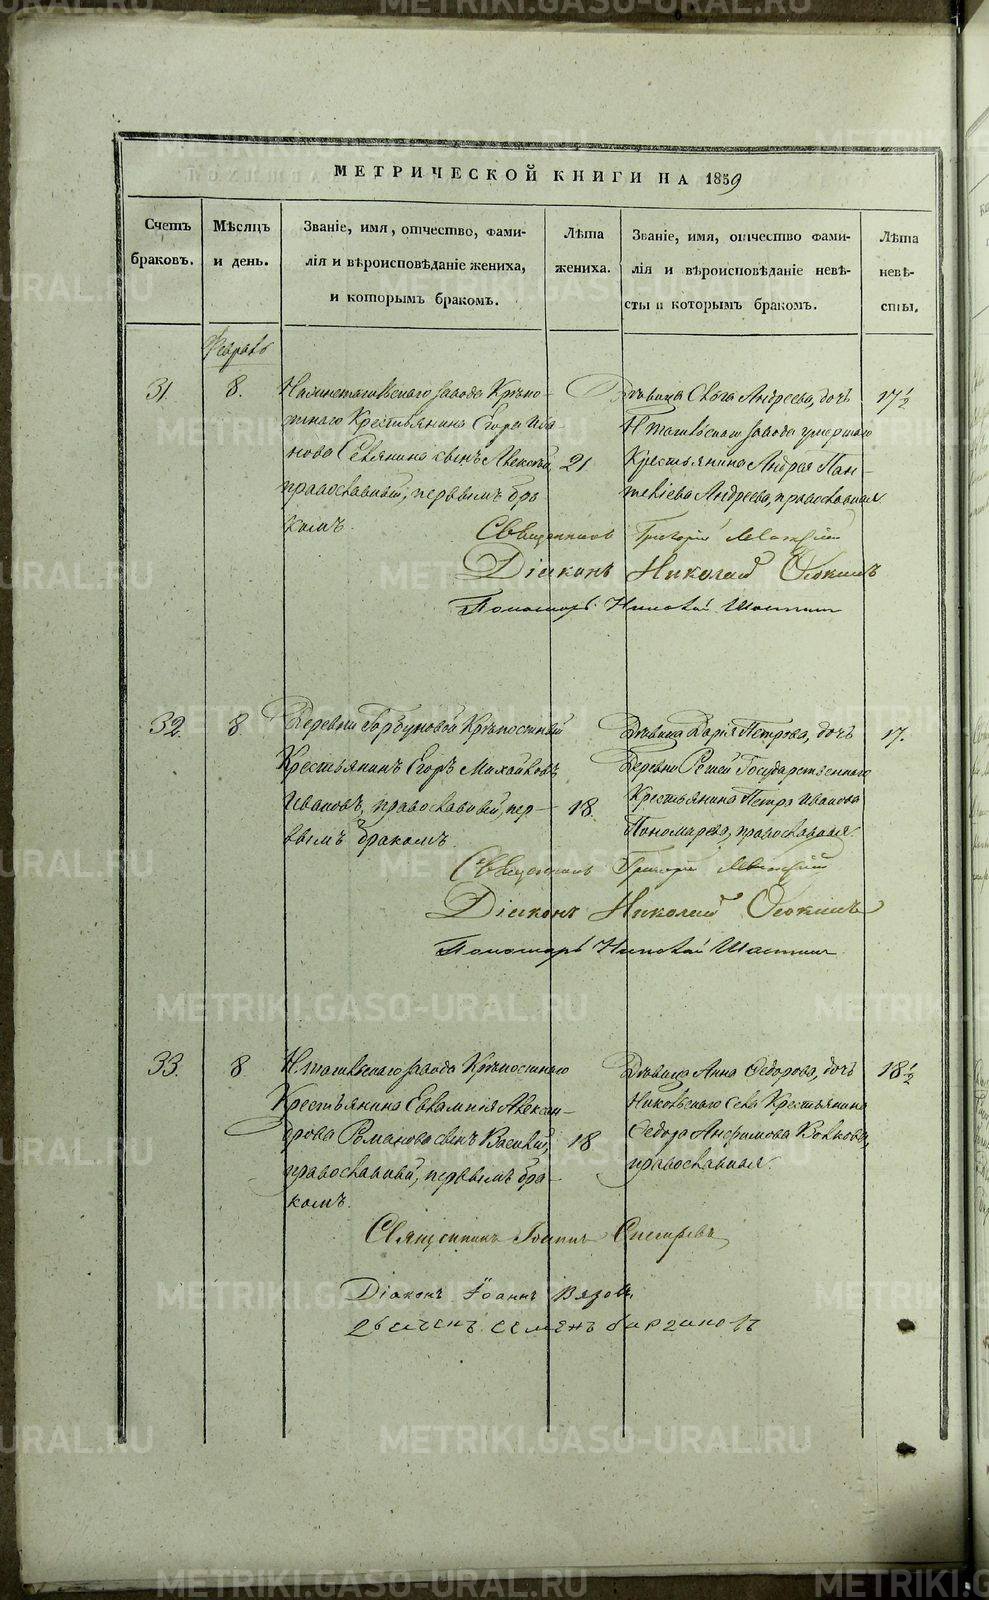 МЕТРИЧЕСКОЙ КНИГИ НА 1859
Счетъ браковъ.
Мѣсяцъ и день.
Званіе, имя, отчество, фами-
лія и вѣроисповѣданіе жениха,
и которымъ бракомъ.
Лѣта жениха.
Званіе, имя, отчество фами-
лія и вѣроисповѣданіе невѣ-
сты и которымъ бракомъ.
Лѣта невѣ-
сты.
31.
8.
завода Крѣпо-
стнаго Крестьянина Егора Ива-
нова Севянина сынъ Алексѣй,
православный, первымъ бра-
комъ.
21
Дѣвица Андреева, дочь
Н. Тагильскаго завода умершаго
Крестьянина Андрея Пан-
телѣева Андреева, православная
17½
Священникъ Григорій
Діаконъ Николай Осокинъ
Пономарь Николай
32.
8
Деревни Горбуновой Крѣпостный
Крестьянинъ Егоръ Михайловъ
Ивановъ, православный, пер-
вымъ бракомъ.
18.
Дѣвица Дарія Петрова, дочь
Деревни Государственнаго
Крестьянина Петра Иванова
Пономарева, православная.
17.
Священникъ Григорій
Діаконъ Николай Осокинъ
Пономарь Николай
33.
8
Н. Тагильскаго завода Крѣпостнаго
Крестьянина Евлампія Алексан-
дрова Романова сынъ Василій,
православный, первымъ бра-
комъ.
18
Дѣвица Анна Ѳедорова, дочь
Села Крестьянина
Ѳедора Анфимова Волкова,
православная.
18½
Священникъ Іоаннъ
Діаконъ Іоаннъ Вязов
Семенъ
METRIKI.GASO-URAL.RU